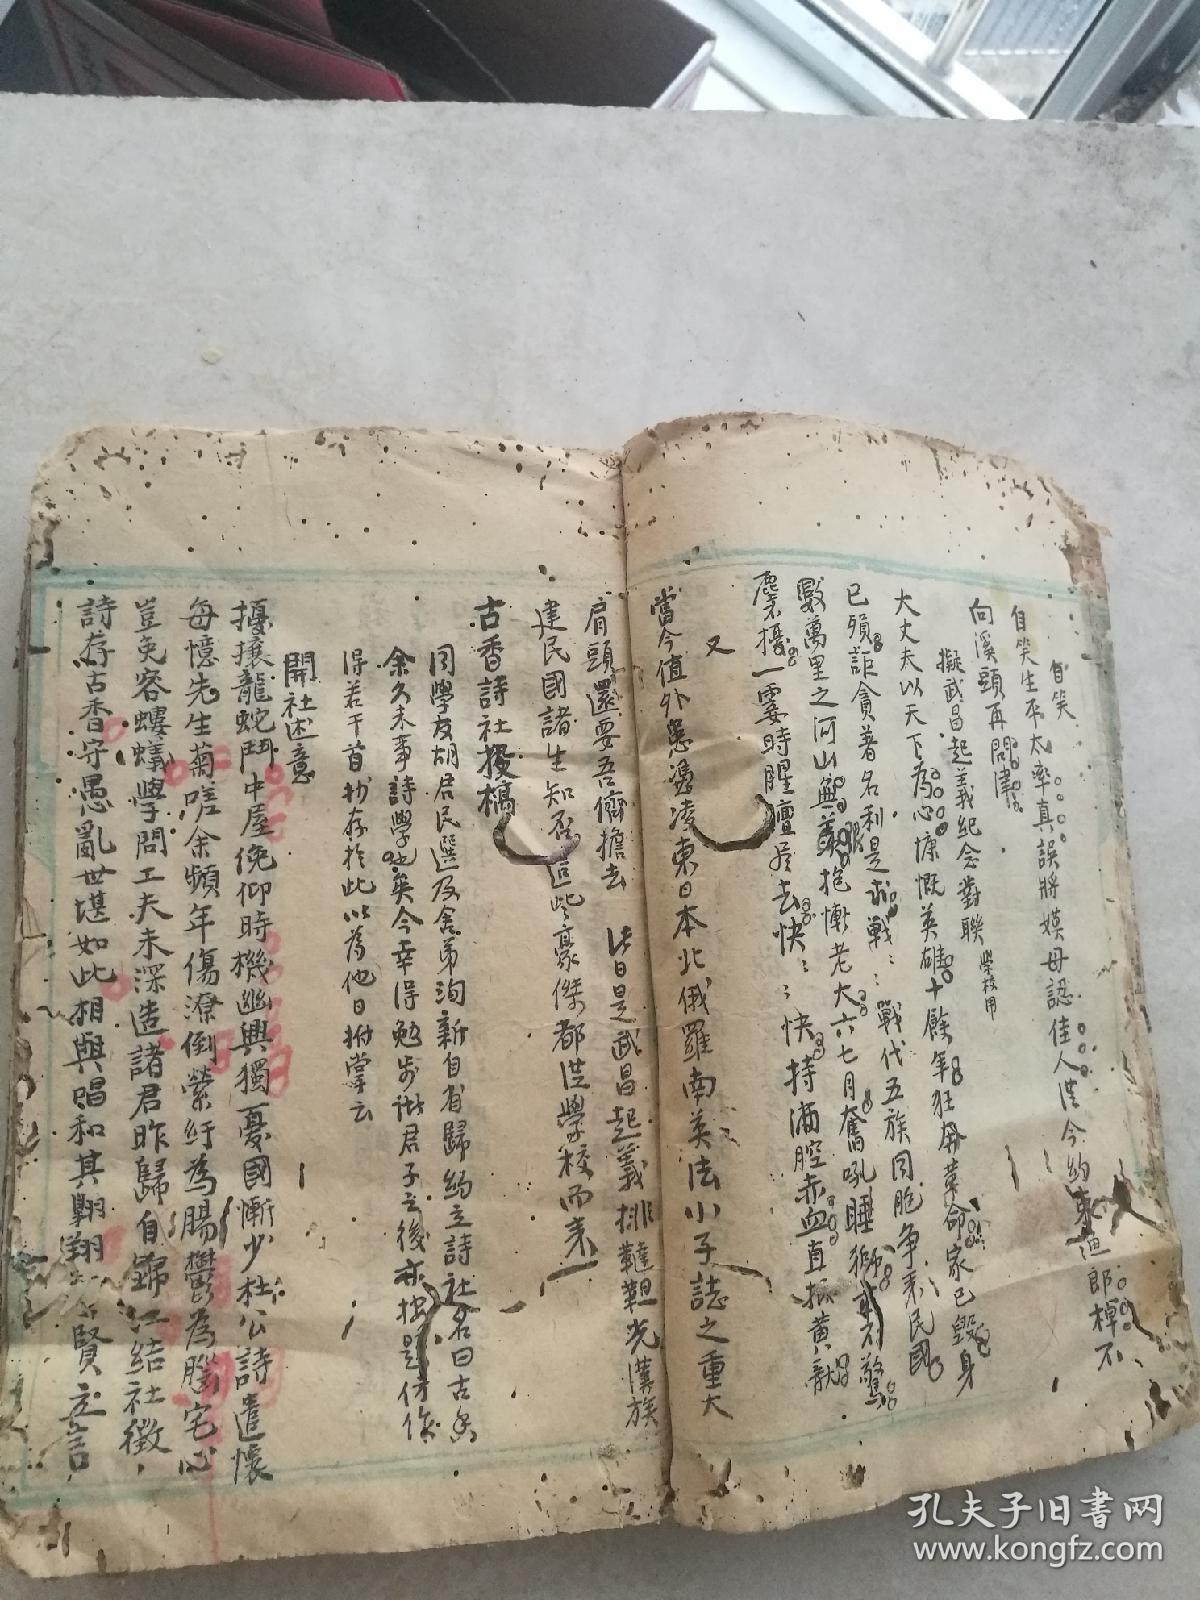 自笑
自笑生平太率真誤將嫫母認佳人從今約束漁郎棹不
向溪頭再問津
擬武昌起義紀念對聯 學校用
大丈夫以天下為心慷慨英雄十餘年狂奔革命家已毀身
已殞詎貪著名利是求戰戰代五族同胞爭來民國
數萬里之河山無恙抱慚老大六七月奮吼睡獅
塵不擾一霎時腥羶居去快快持滿腔赤血直抵黃
又
當今值外患憑凌東日本北俄羅南英法小子誌之重大
肩頭還要吾儕擔去 此日是武昌起義排韃靼光漢族
建民國諸生知否這些豪傑都從學校而來
古香詩社投稿
同學友胡君民選及舍弟洵新自省歸約立詩社名曰古香
余久未事詩學也矣今幸得勉步諸君子之後亦按題仿作
得若干首抄存於此以為他日拊掌云
開社述意
擾攘龍蛇鬥中屋俛仰時機幽興獨憂國慚少杜公詩遣懷
每憶先生菊嗟余頻年傷潦倒縈紆為腸鬱為腦宅心
豈免容螻蟻學問工夫未深造諸君昨歸自錦江結社徵
詩存古香守愚亂世堪如此相與唱和其翱翔 賢立言
孔夫子旧书网
www.kongfz.com